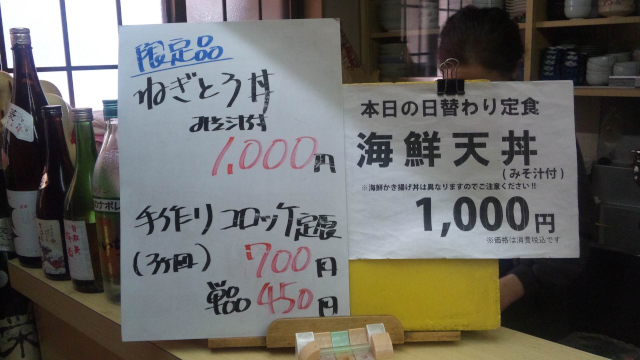 限定品
ねぎとろ丼
みそ汁付
1,000円
手作りコロッケ定食
(3ヶ回)
700円
単品 450円
本日の日替わり定食
海鮮天丼
(みそ汁付)
※海鮮かき揚げ丼は異なりますのでご注意ください!!
1,000円
※価格は消費税込です